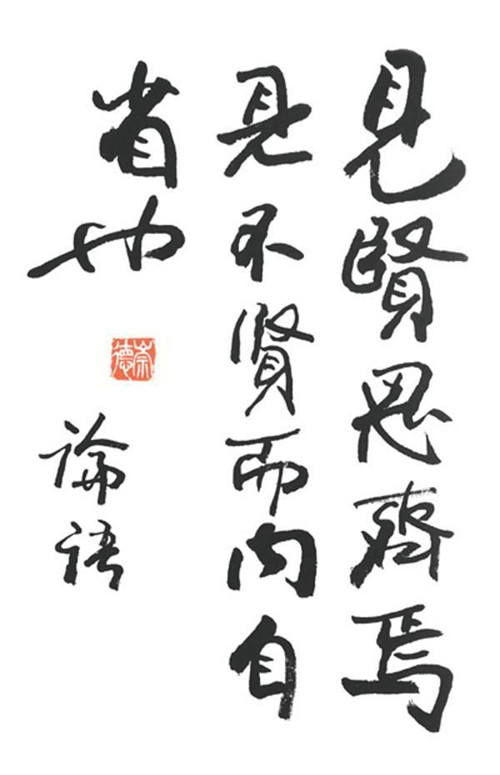 見賢思齊焉
見不賢而内自
省也
崇德
論語